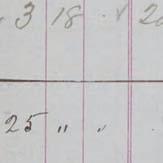 3 18 " 2
25 " "